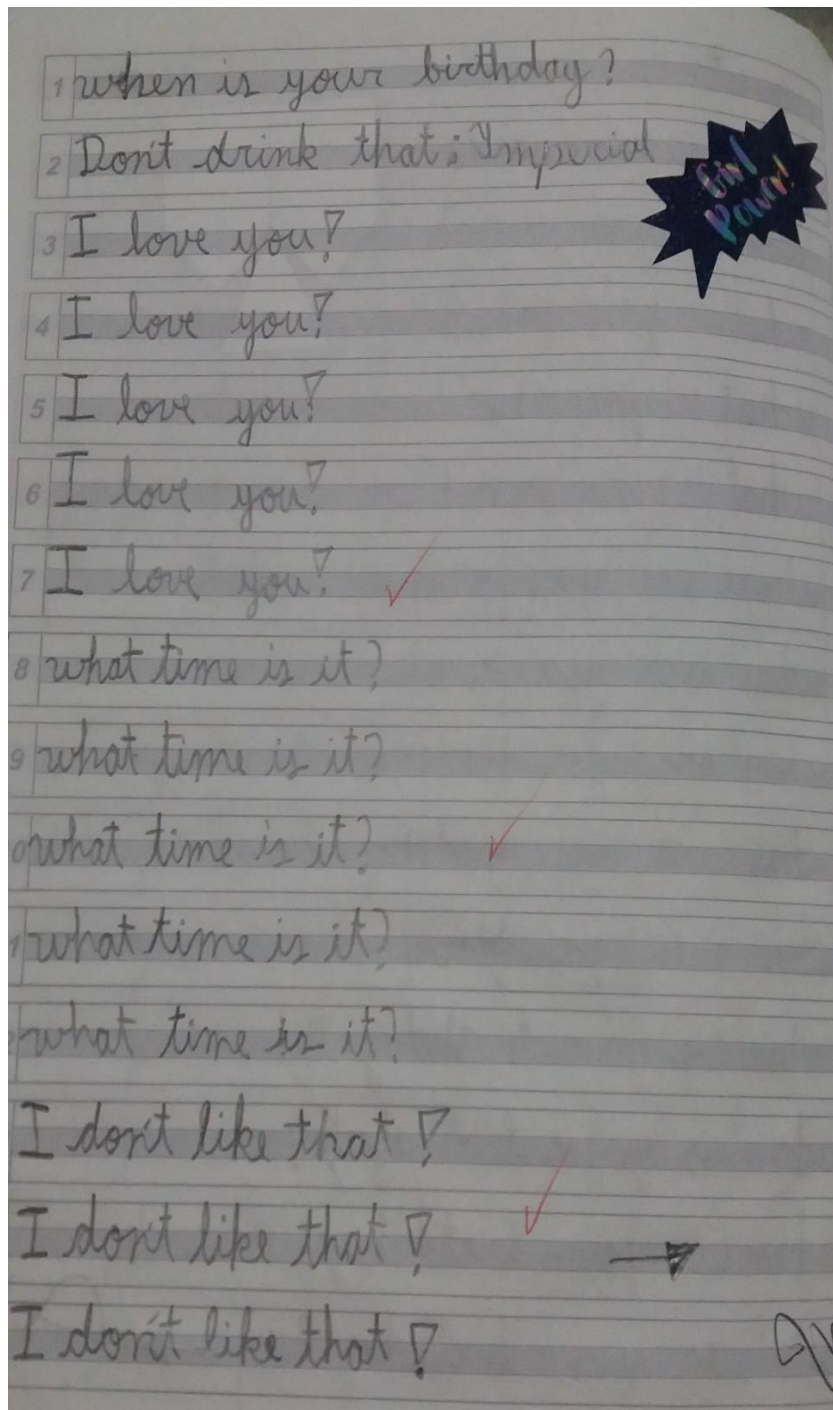 1 when is your birthday?
2 Don't drink that; Imperial
Girl
Power!
3 I love you!
4 I love you!
5 I love you!
6 I love you!
7 I love you!
8 what time is it?
9 what time is it?
0 what time is it?
1 what time is it?
what time is it?
I don't like that!
I don't like that!
I don't like that!